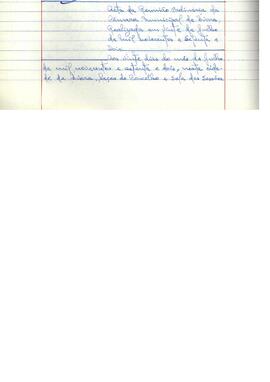 Acta da Reunião Ordinária da
Câmara Municipal de Viana,
Realizada em vinte de Julho
de mil novecentos e setenta e
dois
Aos vinte dias do mês de Julho
de mil novecentos e setenta e dois, nesta cida-
de de Viana, Paços do Concelho e sala das sessões